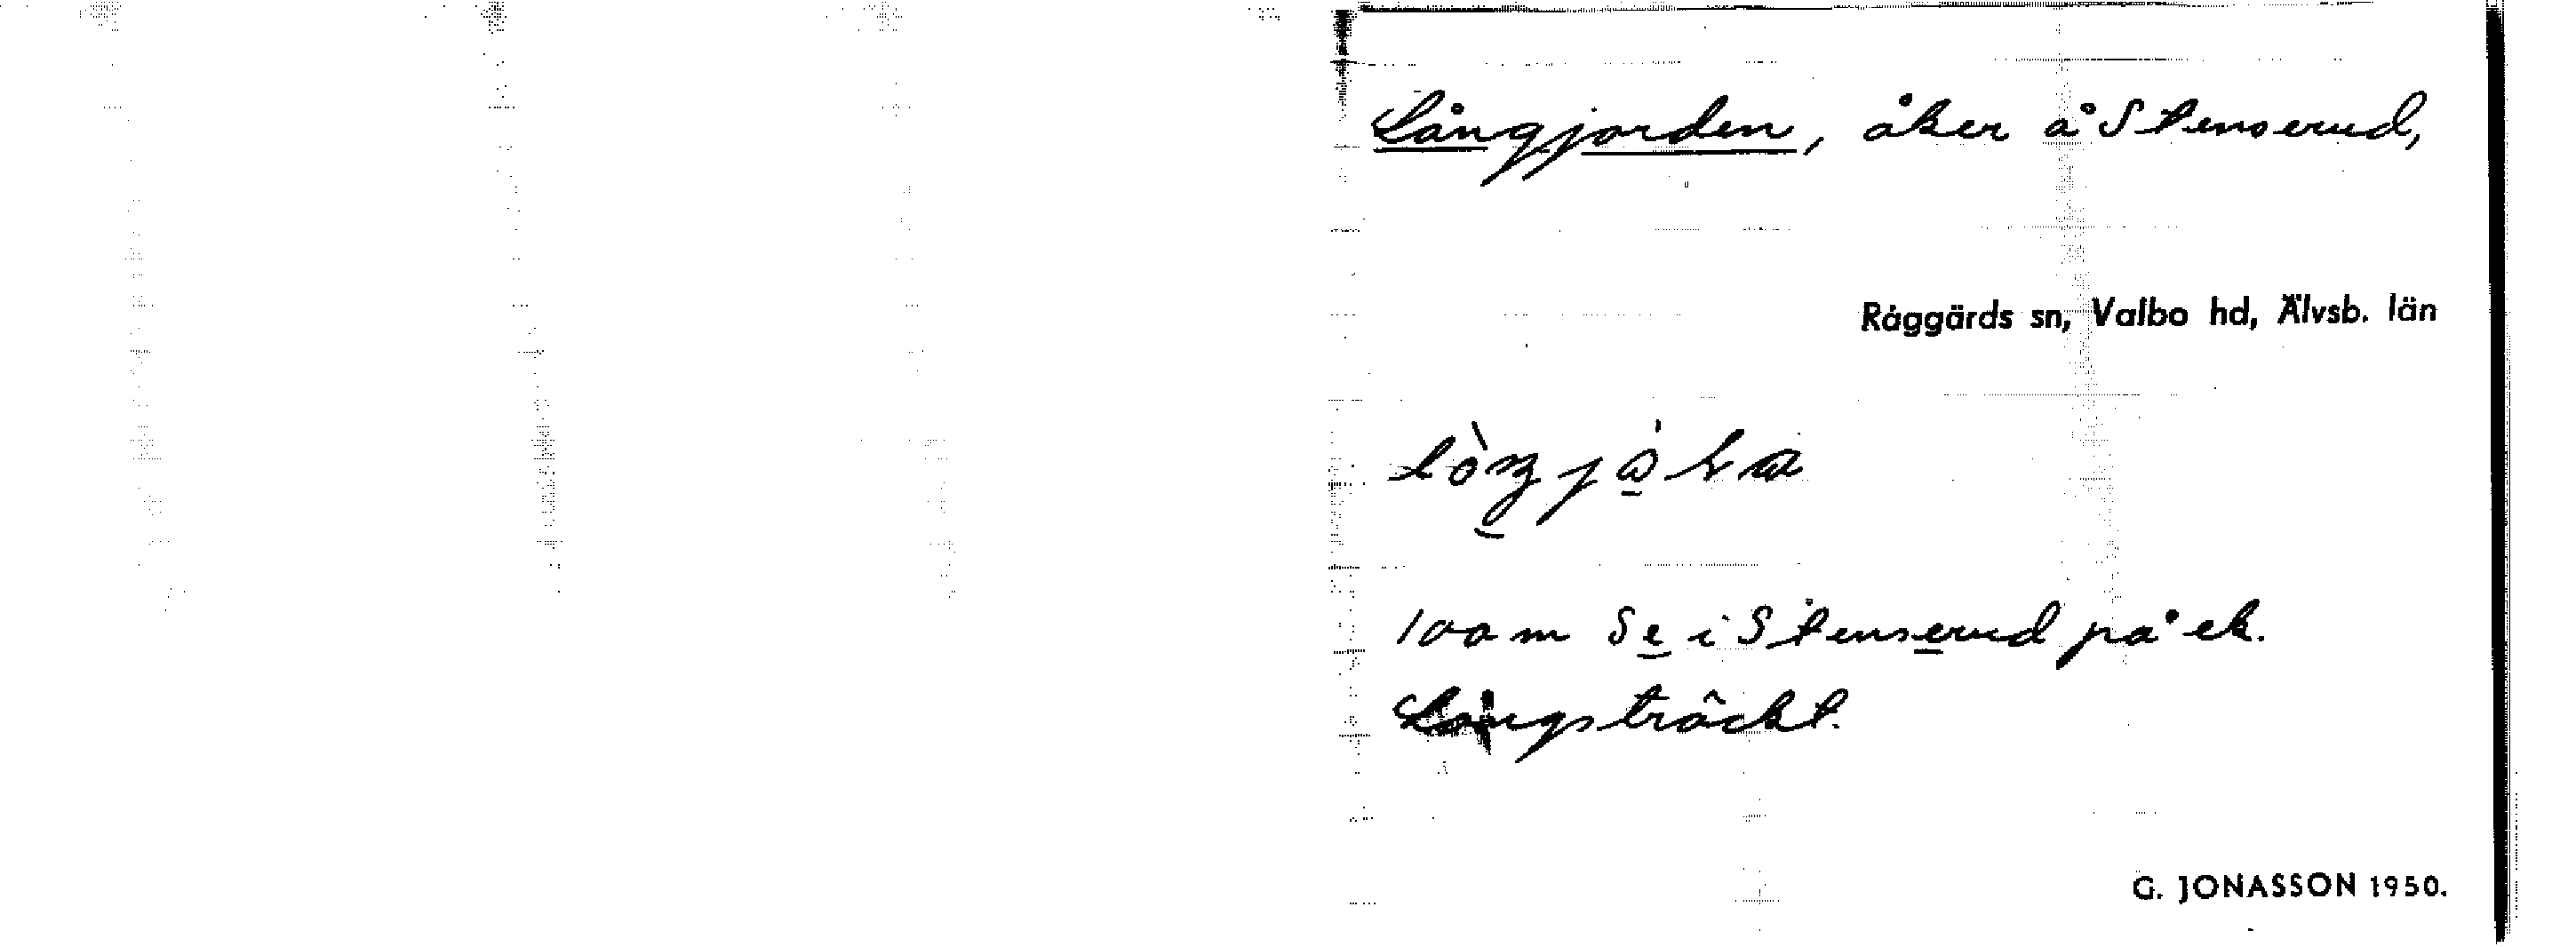 Långjorden, åker å Stenserud,
Råggärds sn, Valbo hd, Älvsb. län
100 m Se i Stenserud på ek.
Långsträckt.
G. JONASSON 1950.